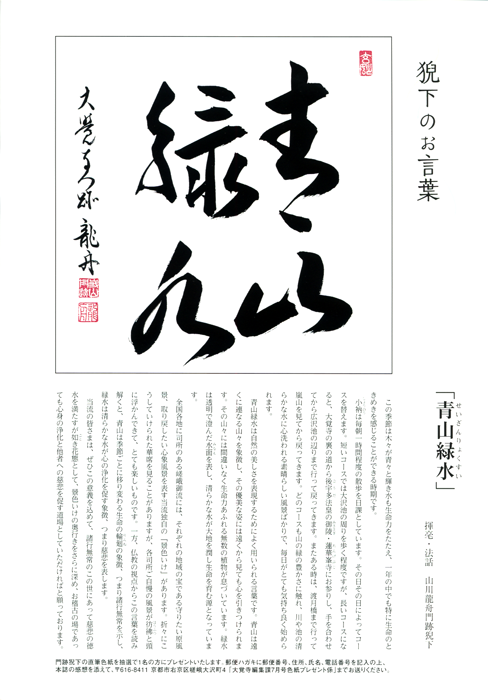 猊下のお言葉
青山
緑水
大覚寺門跡 龍舟
「青山緑水」
せいざんりょくすい
揮毫・法話　山川龍舟門跡猊下
この季節は木々が青々と輝き水も生命力をたたえ、一年の中でも特に生命のと
きめきを感じることができる時期です。
小衲は毎朝一時間程度の散歩を日課としています。その日その日によってコー
スを替えます。短いコースでは大沢池の周りを歩く程度ですが、長いコースにな
ると、大覚寺の裏の道から後宇多法皇の御陵、蓮華峯寺にお参りし、手を合わせ
てから広沢池の辺りまで行って戻ってきます。またある時は、渡月橋まで行って
嵐山を見てから戻ってきます。どのコースも山の緑の豊かさに触れ、川や池の清
らかな水に心洗われる素晴らしい風景ばかりで、毎日がとても気持ち良く始めら
れます。
青山緑水は自然の美しさを表現するためによく用いられる言葉です。青山は遠
くに連なる山々を象徴し、その優美な姿には遠くから見ても心を引きつけられま
す。その山々には間違いなく生命力あふれる無数の植物が息づいています。緑水
は透明で澄んだ水面を表し、清らかな水が大地を潤し生命を育む源となっていま
す。
全国各地に司所のある嵯峨御流には、それぞれの地域の宝である守りたい原風
景、取り戻したい心象風景を表す当流独自の「景色いけ」があります。折々にこ
うしていけられた華席を見ることがありますが、各司所ご自慢の風景が彷彿と頭
に浮かんできて、とても楽しいものです。一方、仏教の視点からこの言葉を読み
解くと、青山は季節ごとに移り変わる生命の輪廻の象徴、つまり諸行無常を示し、
緑水は清らかな水が心の浄化を促す象徴、つまり慈悲を表します。
当流の皆さまは、ぜひこの意義を込めて、諸行無常のこの世にあって慈悲の徳
水を満たすが如き花態として、景色いけの奥行きをさらに深め、お稽古の場であっ
ても心身の浄化と他者への慈悲を促す道場としていただければと願っております。
門跡猊下の直筆色紙を抽選で1名の方にプレゼントいたします。郵便ハガキに郵便番号、住所、氏名、電話番号を記入の上、
本誌の感想を添えて、〒616-8411 京都市右京区嵯峨大沢町4「大覚寺編集課7月号色紙プレゼント係」までお送りください。